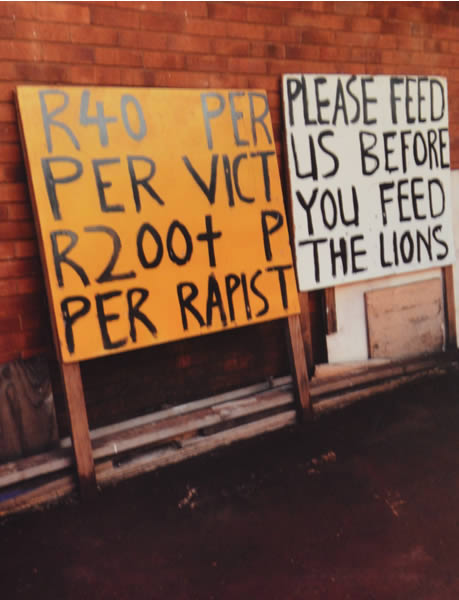 R40 PER
PER VICT
R200+ P
PER RAPIST
PLEASE FEED
US BEFORE
YOU FEED
THE LIONS